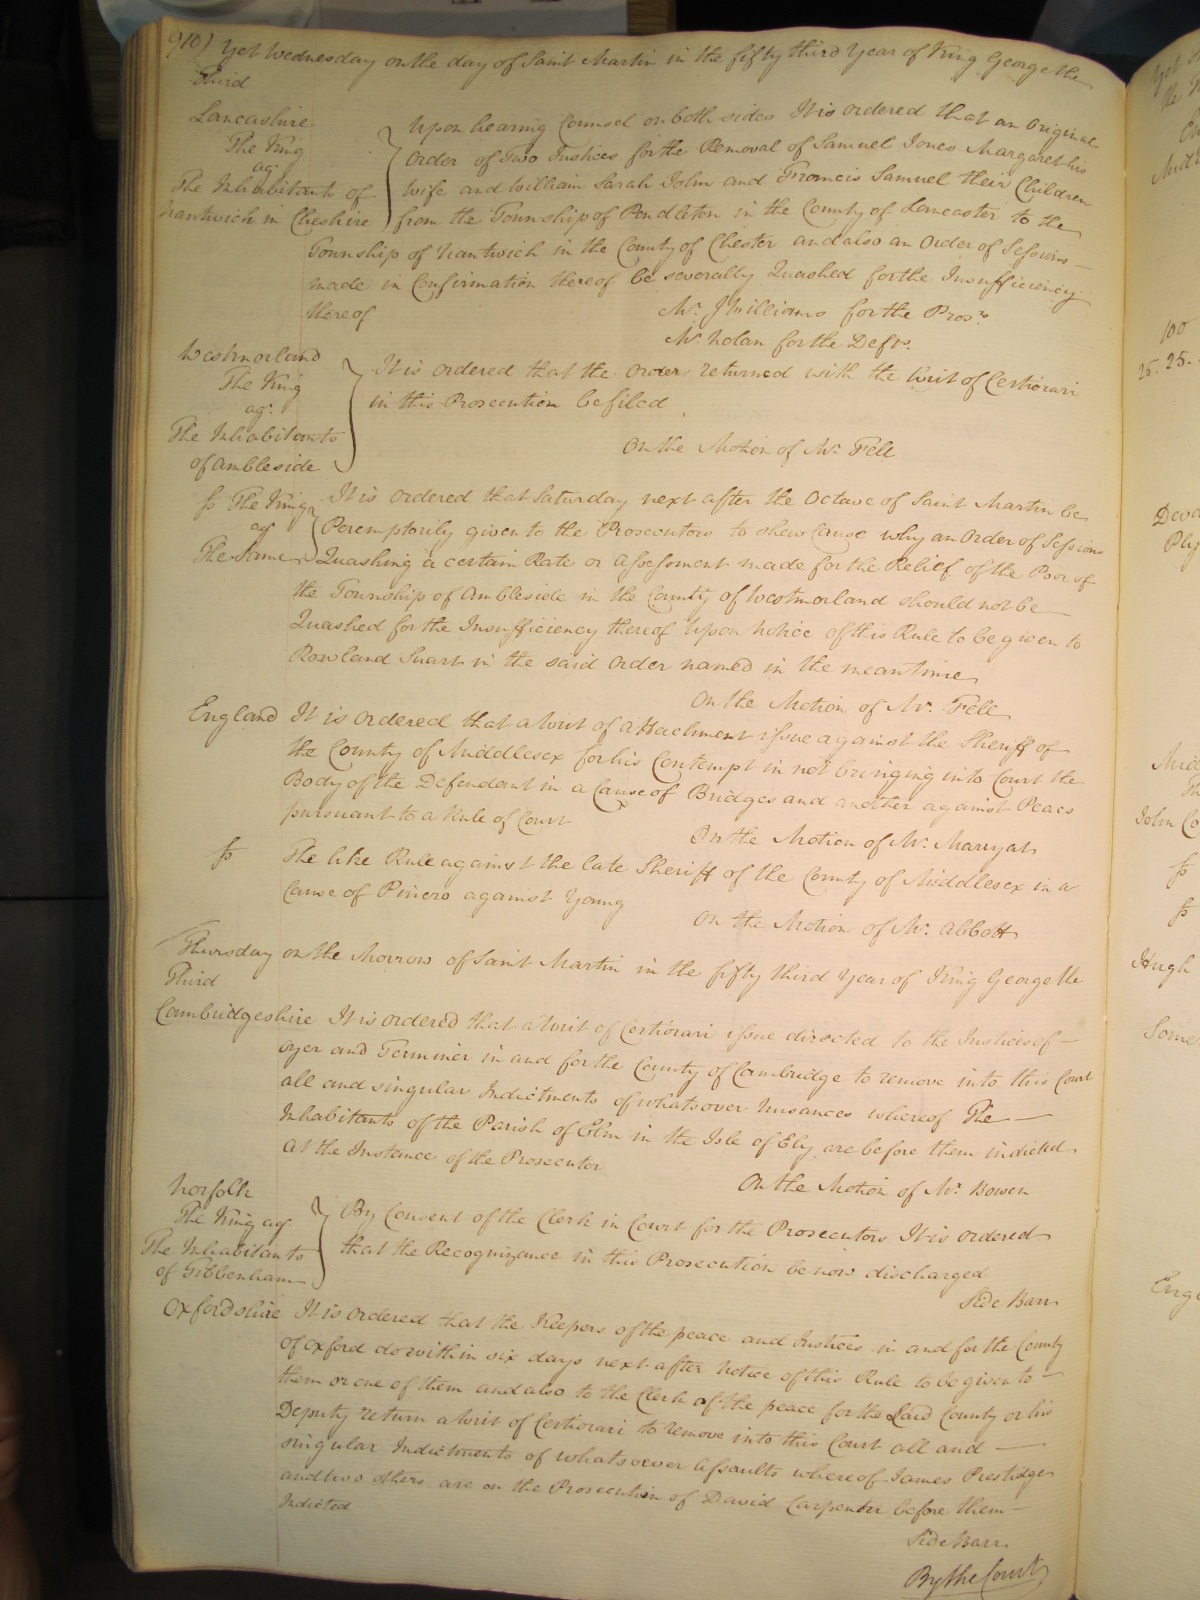 910) Yet Wednesday on the day of Saint Martin in the fifty third Year of King George the
Third
Lancashire
The King
agt
The Inhabitants of
Nantwich in Cheshire
Upon hearing Counsel on both sides It is ordered that an Original
Order of Two Justices for the Removal of Samuel Jones Margaret his
Wife and William Sarah John and Francis Samuel their Children
from the Township of Pendleton in the County of Lancaster to the
Township of Nantwich in the County of Chester and also an Order of Sessions
made in Confirmation thereof be severally Quashed for the Insufficiency
thereof
Mr. J Williams for the Prosrs
Mr Nolan for the Defts.
Westmorland
The King
agt
The Inhabitants
of Ambleside
It is ordered that the Order returned with the Writ of Certiorari
in this Prosecution be filed
On the Motion of Mr. Fell
The King
agt
The Same
It is ordered that Saturday next after the Octave of Saint Martin be
Peremptorily given to the Prosecutors to shew Cause why an Order of Sessions
Quashing a certain Rate or Assessment made for the Relief of the Poor of
the Township of Ambleside in the County of Westmorland should not be
Quashed for the Insufficiency thereof Upon Notice of this Rule to be given to
Rowland in the said Order named in the mean time
On the Motion of Mr. Fell
England It is ordered that a Writ of Attachment issue against the Sheriff of
the County of Middlesex for his Contempt in not bringing into Court the
Body of the Defendant in a Cause of Bridges and another against Peacs
pursuant to a Rule of Court
On the Motion of Mr. Marryat
The like Rule against the late Sheriff of the County of Middlesex in a
Cause of Pinero against Young
On the Motion of Mr. Abbott
Thursday on the Morrow of Saint Martin in the fifty third Year of King George the
Third
Cambridgeshire It is ordered that a Writ of Certiorari issue directed to the Justices of
Oyer and Terminer in and for the County of Cambridge to remove into this Court
all and singular Indictments of whatsover Nusances whereof The
Inhabitants of the Parish of Elm in the Isle of Ely are before them indicted
At the Instance of the Prosecutor
On the Motion of Mr. Bowen
Norfolk
The King agt
The Inhabitants
of Tibbenham
By Consent of the Clerk in Court for the Prosecutors It is ordered
that the Recognizance in this Prosecution be now discharged
Side Barr
Oxfordshire It is ordered that the Keepers of the peace and Justices in and for the County
of Oxford do within six days next after Notice of this Rule to be given to
them or one of them and also to the Clerk of the peace for the said County or his
Deputy return a Writ of Certiorari to remove into this Court all and
singular Indictments of whatsoever Assaults whereof James Prestidge
and two others are on the Prosecution of David Carpenter before them
Indicted
Side Barr
By the Court
100
25. 25.
John
Hugh